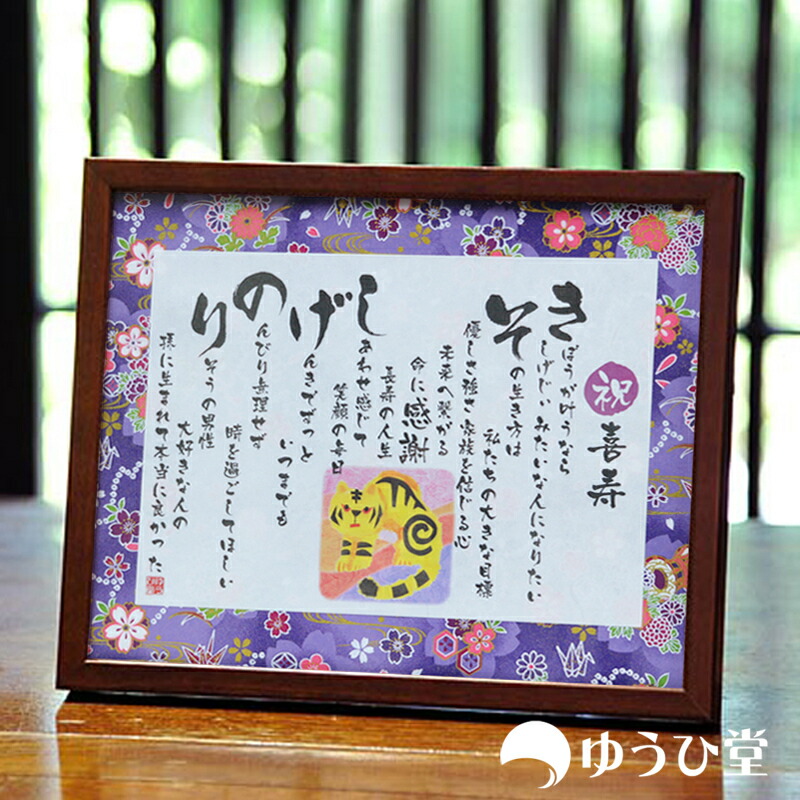 祝 喜寿
きぼうが叶うなら
しげじいみたいな人になりたい
その生き方は
私たちの大きな目標
優しさ強さ家族を信じる心
未来へ繋がる
命に感謝
長寿の人生
しあわせ感じて
笑顔の毎日
げんきでずっと
いつまでも
のんびり無理せず
時を過ごしてほしい
りそうの男性
大好きな人の
孫に生まれて本当に良かった
ゆうひ堂